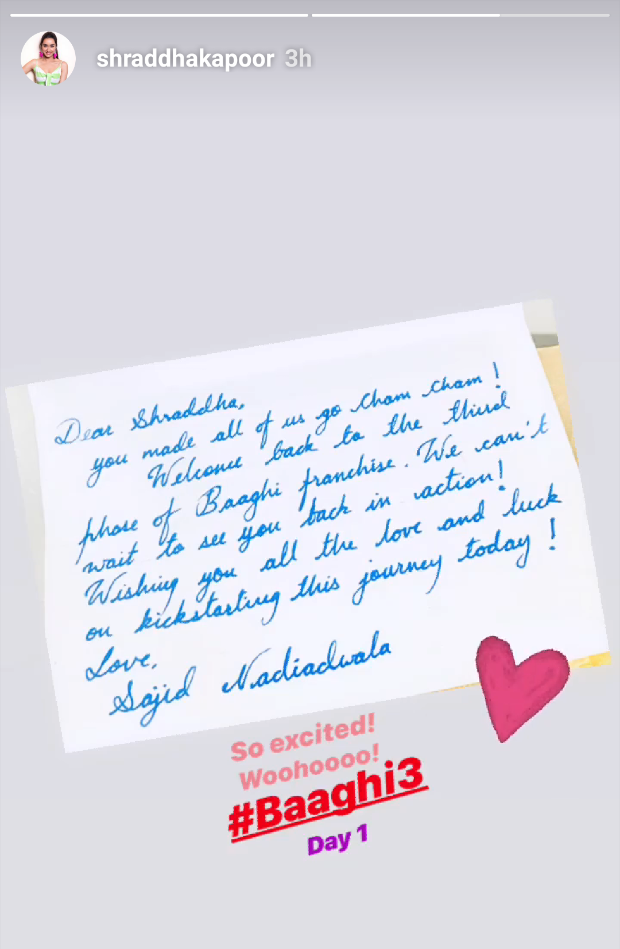 shraddhakapoor 3h
Dear Shraddha,
you made all of us go Cham Cham!
Welcome back to the third
phase of Baaghi franchise. We can't
wait to see you back in action!
Wishing you all the love and luck
on kickstarting this journey today!
Love,
Sajid Nadiadwala
So excited!
Woohoooo!
#Baaghi3
Day 1